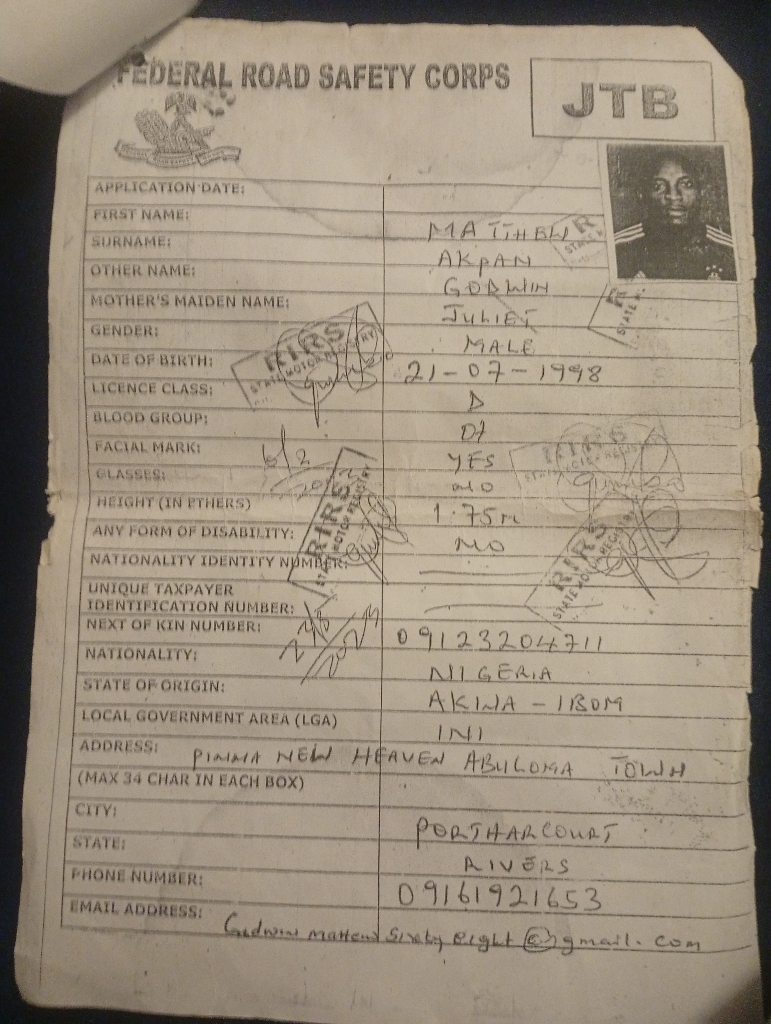 FEDERAL ROAD SAFETY CORPS
JTB
APPLICATION DATE:
FIRST NAME: MATTHEW
SURNAME: AKPAN
OTHER NAME: GODWIN
MOTHER'S MAIDEN NAME: JULIET
GENDER: MALE
DATE OF BIRTH: 21-07-1998
LICENCE CLASS: D
BLOOD GROUP: O+
FACIAL MARK: YES
GLASSES: NO
HEIGHT (IN ETHERS) 1.75m
ANY FORM OF DISABILITY: NO
NATIONALITY IDENTITY NUMBER:
UNIQUE TAXPAYER
IDENTIFICATION NUMBER:
NEXT OF KIN NUMBER: 09123204711
NATIONALITY: NIGERIA
STATE OF ORIGIN: AKWA-IBOM
LOCAL GOVERNMENT AREA (LGA) INI
ADDRESS: NEW HEAVEN ABULOMA TOWN
(MAX 34 CHAR IN EACH BOX)
CITY: PORTHARCOURT
STATE: RIVERS
PHONE NUMBER: 09161921653
EMAIL ADDRESS: Sixty eight @gmail.com
RIRS
STATE MOTOR REGISTRY
RIRS
STATE MOTOR REGISTRY
RIRS
STATE MOTOR REGISTRY
RIRS